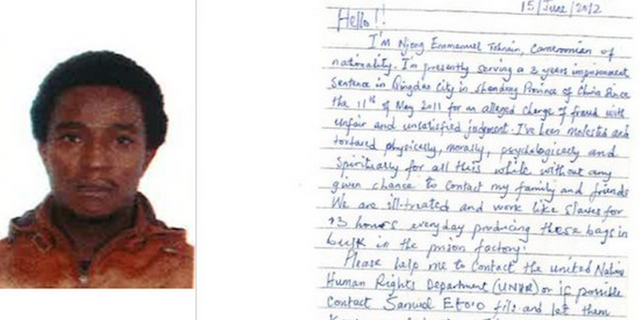 15/June/2012
Hello!!
I'M Njong Emmanuel Tohnain, Cameroonian of
nationality. I'm presently serving a 3 years imprisonment
sentence in Qingdao City in Shandong Province of China Since
the 11th of May 2011 for an alleged charge of fraud with
unfair and unsatisfied judgment. I've been molested and
tortured physically, morally, psychologically and
spiritually for all this while without any
given chance to contact my family and friends
We are ill-treated and work like slaves for
13 hours everyday producing these bags in
bulk in the prison factory.
Please help me to contact the united Nations
Human Rights Department (UNHR) or if possible
contact Samuel Eto'o fils and let them